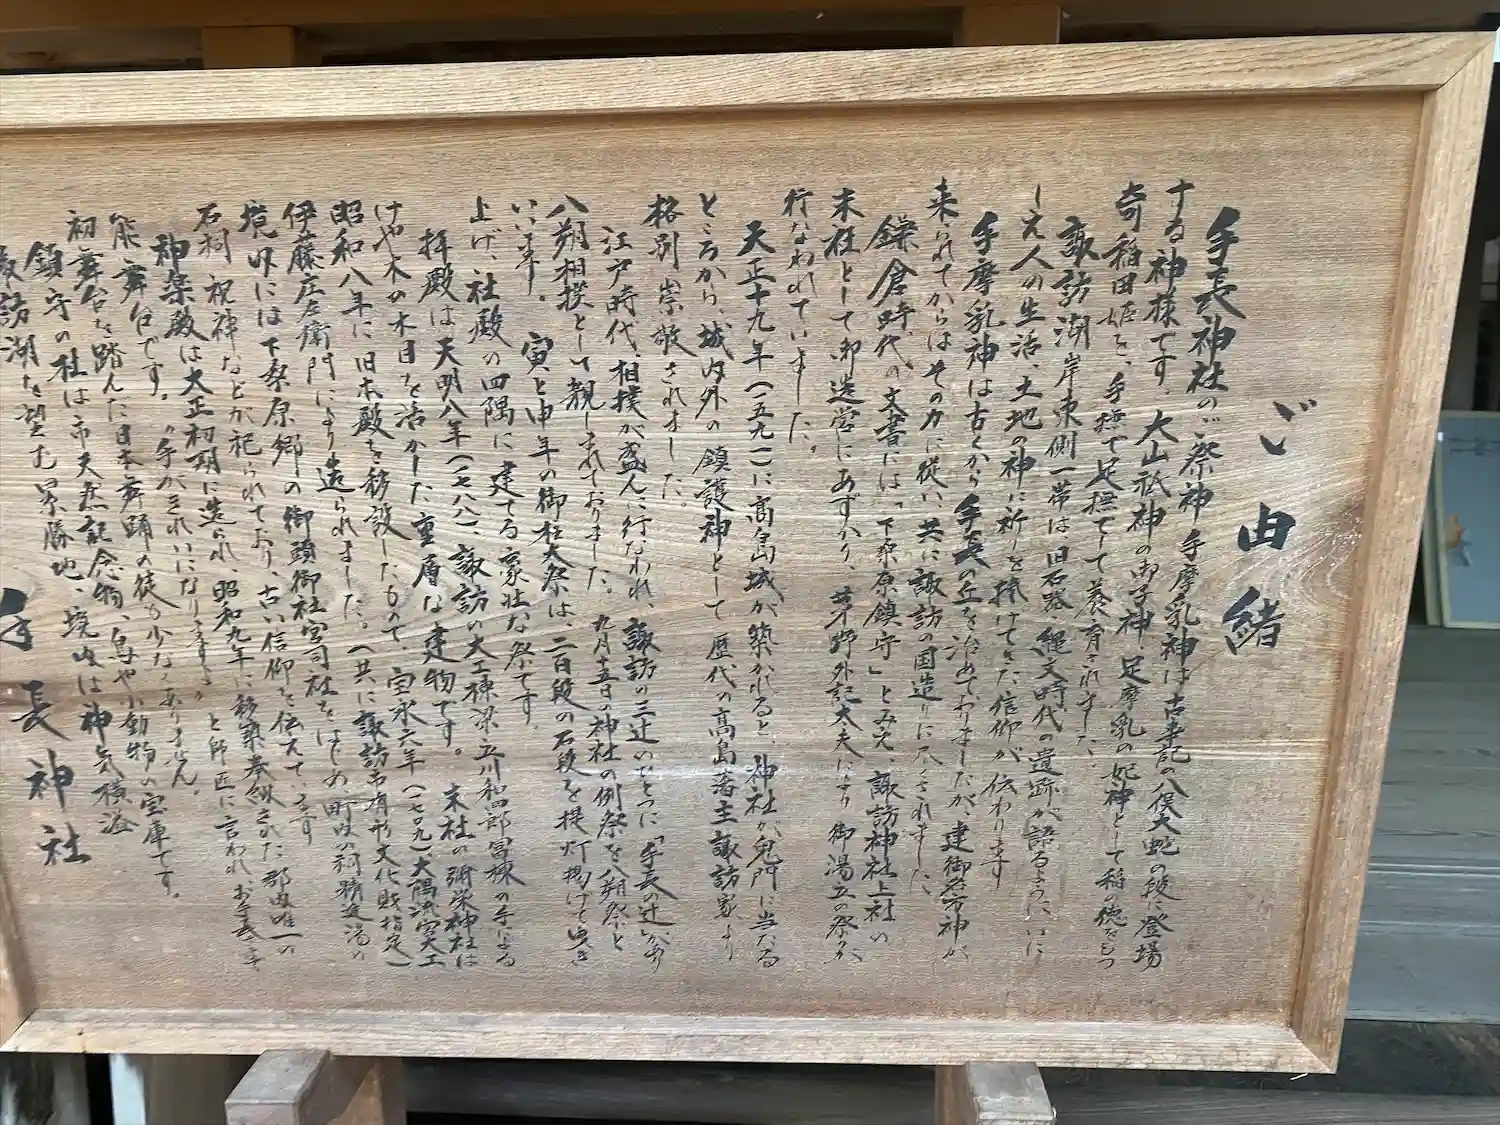 ご由緒
手長神社のご祭神 手摩乳神は 古事記の八俣大蛇の段に登場
する神様です。大山祇神の御子神、足摩乳の妃神として稲の徳をもつ
奇稲田姫を、手撫で足撫でして養育されました。
諏訪湖岸東側一帯は、旧石器、縄文時代の遺跡が語るように、いに
しえ人の生活、土地の神に祈りを捧げてきた信仰が伝わります
手摩乳神は古くから手長の丘を治めておりましたが、建御名方神が
来られてからはその力に従い、共に諏訪の国造りに尽されました
鎌倉時代の文書には「下桑原鎮守」とみえ、諏訪神社上社の
末社として御造営にあずかり、茅野外記大夫により御湯立の祭が
行なわれていました。
天正十九年(一五九一)に高島城が築かれると、神社が鬼門に当たる
ところから、城内外の鎮護神として歴代の高島藩主諏訪家より
格別崇敬されました。
江戸時代、相撲が盛んに行なわれ、諏訪の三辻のひとつに「手長の辻」があり
八朔相撲として親しまれておりました。九月十五日の神社の例祭を八朔祭と
いいます。寅と申年の御柱大祭は、二百段の石段を提灯掲げて曳き
上げ、社殿の四隅に建てる豪壮な祭です。
拝殿は天明八年(一七八八)、諏訪の大工棟梁・立川和四郎富棟の手による
けや木の木目を活かした重層な建物です。末社の彌栄神社は
昭和八年に旧本殿を移設したもので、宝永六年(一七〇九)大隅流宮大工
伊藤庄左衛門により造られました。(共に諏訪市有形文化財指定)
境内には下桑原郷の御頭御社宮司社をはじめ、町内の祠、精進湯の
石祠、祝神などが祀られており、古い信仰を伝えています
神楽殿は大正初期に造られ、昭和九年に移築奉納された郡内唯一の
能舞台です。"手がきれいになりますよ"と師匠に言われお手長さまで
初舞台を踏んだ日本舞踊の徒も少なくありません。
鎮守の杜は市天然記念物、鳥や小動物の宝庫です。
諏訪湖を望む景勝地、境内は神気横溢
手長神社